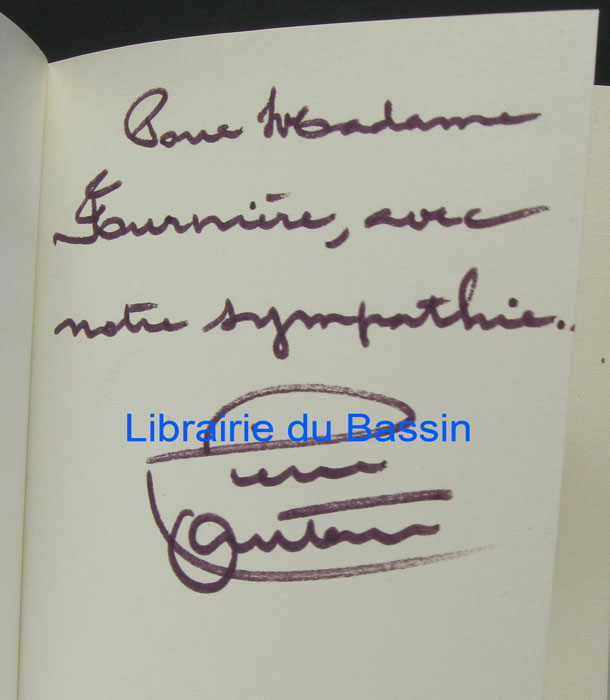 Pour Madame
Fournière, avec
notre sympathie..
Librairie du Bassin